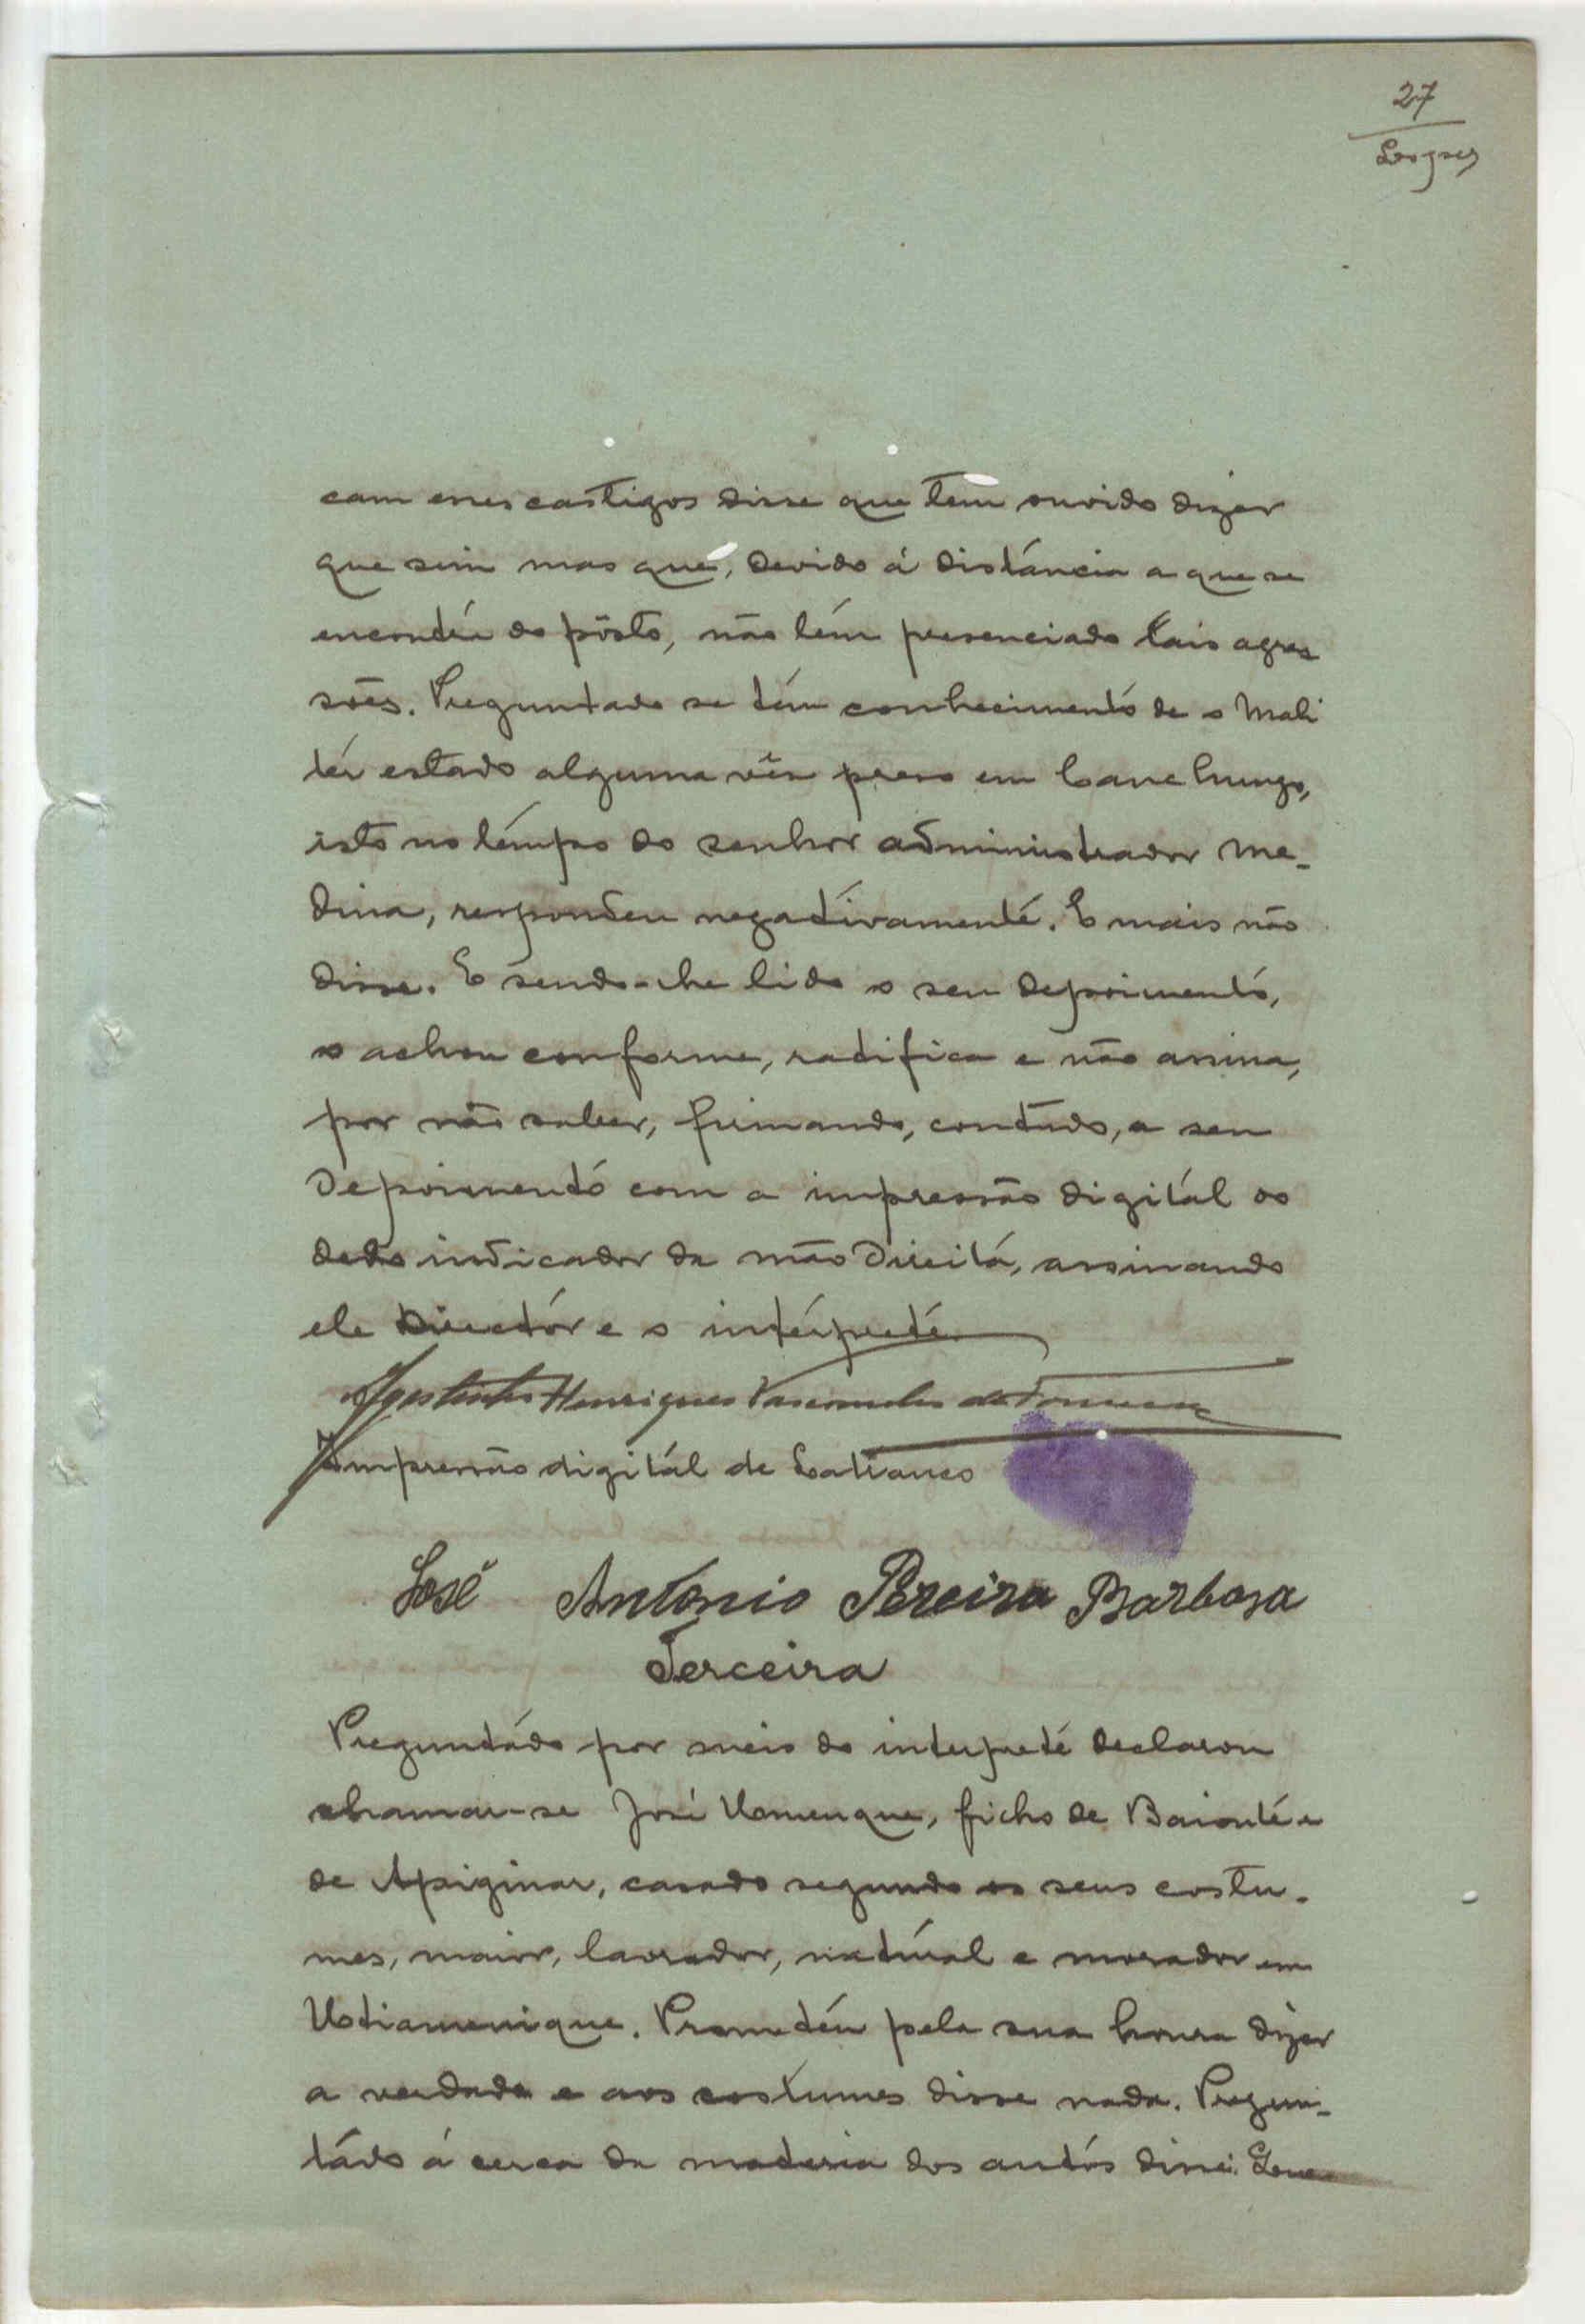 27
cam esses castigos disse que tem ouvido dizer
que sim mas que, devido á distáncia a que se
encontra do pôsto, não tém presenciado tais agres
sões. Preguntado se tém conhecimento de o Mali
tér estado alguma vês preso em Canchungo,
isto no témpo do senhor administrador Me-
dina, respondeu negativamente. E mais não
disse. E sendo-lhe lido o seu depoimento,
o achou conforme, ratifica e não assina,
por não saber, firmando, contudo, o seu
depoimento com a impressão digitál do
dedo indicador da mão direita, assinando
ele Director e o intérprete
Agostinho Henriques Vasconcelos da Fonseca
Impressão digitál de
José António Pereira Barbosa
Terceira
Preguntádo por meio do interprete declarou
chamar-se José filho de e
de casado segundo os seus costu-
mes, maior, lavrador, natural e morador em
Prometeu pela sua honra dizer
a verdade e aos costumes disse nada. Pregun-
tádo á cerca da materia dos autós disse: